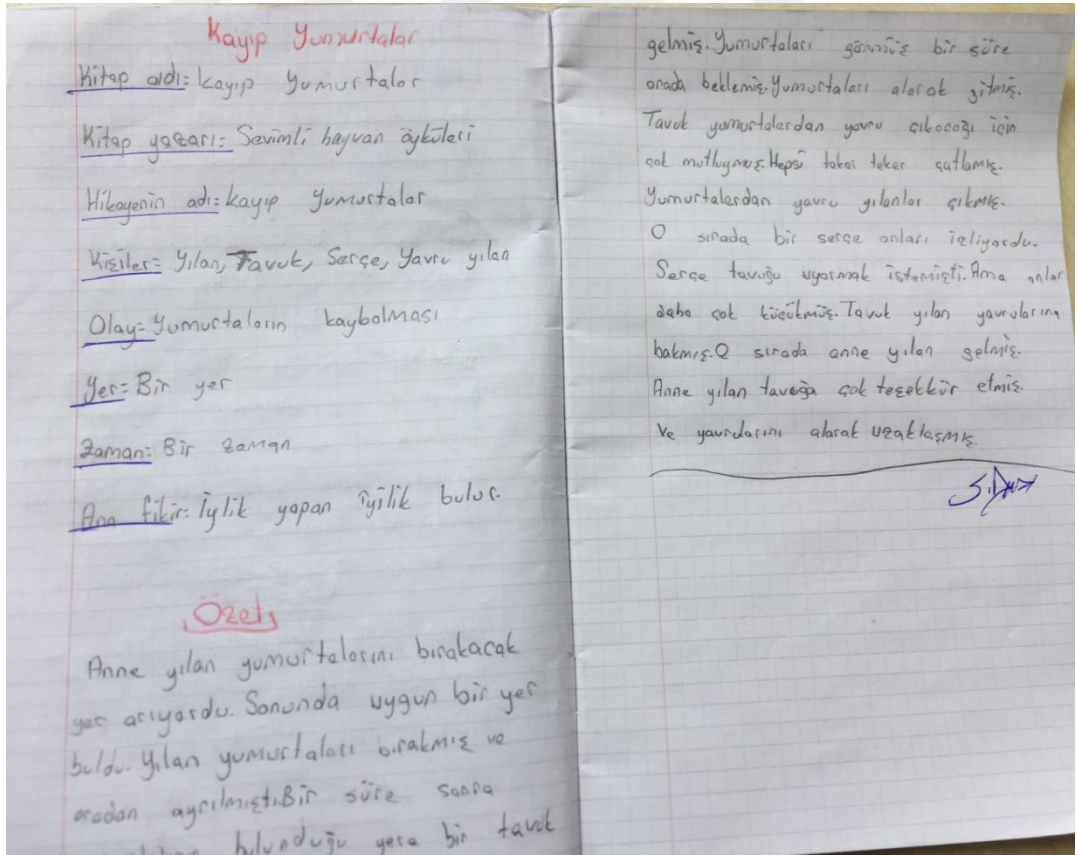 Kayıp Yumurtalar
Kitap adı= Kayıp Yumurtalar
Kitap yazarı= Sevimli hayvan öyküleri
Hikayenin adı= Kayıp Yumurtalar
Kişiler= Yılan, Tavuk, Serçe, Yavru yılan
Olay= Yumurtaların kaybolması
Yer= Bir yer
Zaman= Bir zaman
Ana fikir= İylik yapan iyilik bulur.
Özet
Anne yılan yumurtalarını bırakacak
yer arıyordu. Sonunda uygun bir yer
buldu. Yılan yumurtaları bırakmış ve
oradan ayrılmıştı. Bir süre sonra
bulunduğu yere bir tavuk
gelmiş. Yumurtaları görmüş bir süre
orada beklemiş. Yumurtaları alarak gitmiş.
Tavuk yumurtalardan yavru çıkacağı için
çok mutluymuş. Hepsi teker teker çatlamış.
Yumurtalardan yavru yılanlar çıkmış.
O sırada bir serçe onları izliyordu.
Serçe tavuğu uyarmak istemişti. Ama onlar
daha çok küçükmüş. Tavuk yılan yavrularına
bakmış. O sırada anne yılan gelmiş.
Anne yılan tavuğa çok teşekkür etmiş.
Ve yavrularını alarak uzaklaşmış.